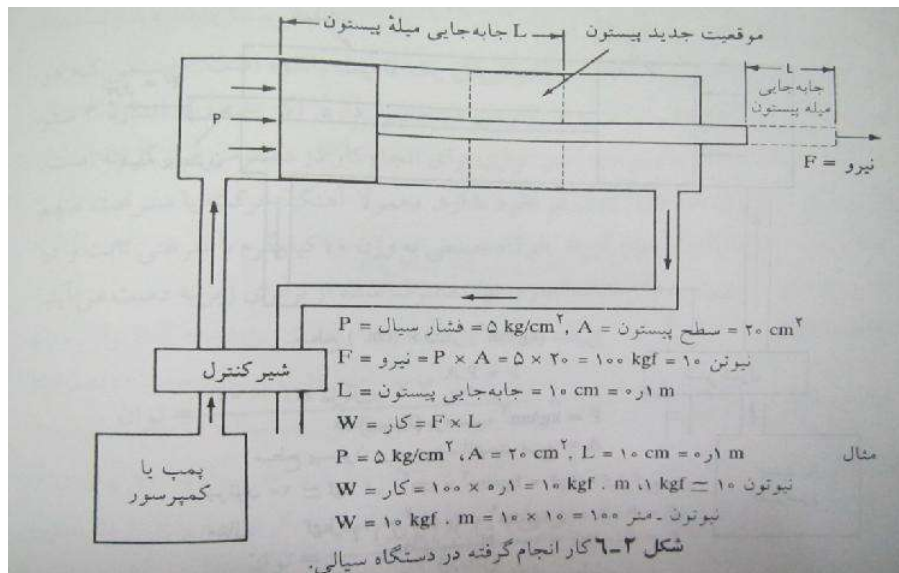 جابه‌جایی میلهٔ پیستون L
موقعیت جدید پیستون
L
جابه‌جایی
میله پیستون
P
نیرو = F
P = فشار سیال = ۵ kg/cm۲, A = سطح پیستون = ۲۰ cm۲
F = نیرو = P × A = ۵ × ۲۰ = ۱۰۰ kgf = ۱۰ نیوتن
L = جابه‌جایی پیستون = ۱۰ cm = ۰ر۱ m
W = کار = F × L
مثال P = ۵ kg/cm۲ ، A = ۲۰ cm۲, L = ۱۰ cm = ۰ر۱ m
W = کار = ۱۰۰ × ۰ر۱ = ۱۰ kgf . m ،۱ kgf ≃ ۱۰ نیوتون
W = ۱۰ kgf . m = ۱۰ × ۱۰ = ۱۰۰ نیوتون ـ متر
شیر کنترل
پمپ یا
کمپرسور
شکل ۲ـ۶ کار انجام گرفته در دستگاه سیالی.